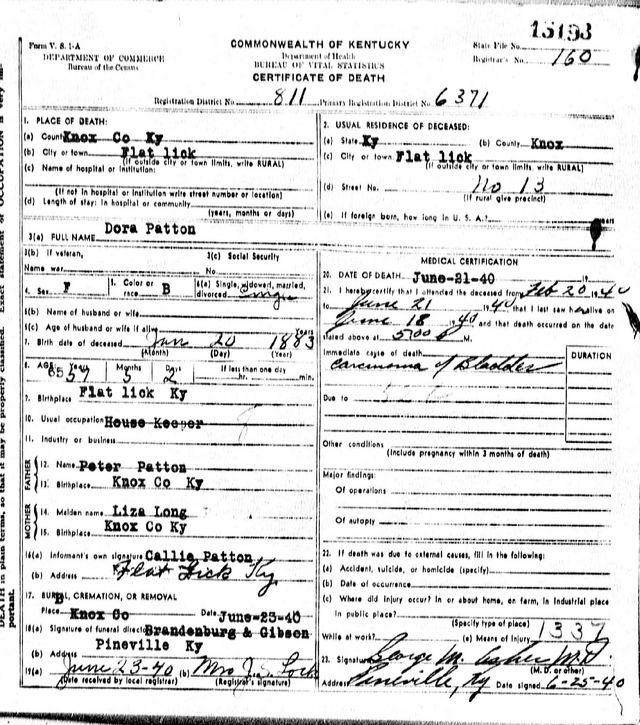 15193
Form V. S. 1-A
COMMONWEALTH OF KENTUCKY
State File No.
DEPARTMENT OF COMMERCE
Bureau of the Census
Department of Health
BUREAU OF VITAL STATISTICS
Registrar's No. 160
CERTIFICATE OF DEATH
Registration District No. 811 Primary Registration District No. 6371
1. PLACE OF DEATH:
(a) County Knox Co Ky
(b) City or town Flat lick
(If outside city or town limits, write RURAL)
(c) Name of hospital or institution:
(If not in hospital or institution write street number or location)
(d) Length of stay: In hospital or community
(years, months or days)
2. USUAL RESIDENCE OF DECEASED:
(a) State Ky (b) County Knox
(c) City or town Flat lick
(If outside city or town limits, write RURAL)
(d) Street No. No 13
(If rural give precinct)
(e) If foreign born, how long in U. S. A.?
3(a) FULL NAME Dora Patton
3(b) If veteran,
Name war
3(c) Social Security
No.
4. Sex F
5. Color or race B
6(a) Single, widowed, married, divorced Single
6(b) Name of husband or wife
6(c) Age of husband or wife if alive Years
7. Birth date of deceased Jan 20 1883
(Month) (Day) (Year)
8. AGE 57 Years Months 5 Days 2
If less than one day
hr. min.
9. Birthplace Flat lick Ky
10. Usual occupation House Keeper
11. Industry or business
FATHER
12. Name Peter Patton
13. Birthplace Knox Co Ky
MOTHER
14. Maiden name Liza Long
15. Birthplace Knox Co Ky
16(a) Informent's own signature Callie Patton
(b) Address Flat Lick Ky
17. BURIAL, CREMATION, OR REMOVAL
B
Place Knox Co Date June-23-40
18(a) Signature of funeral director Brandenburg & Gibson
Pineville Ky
(b) Address
19(a) June 23-40 (b) Mrs J. S. Lock
(Date received by local registrar) (Registrar's signature)
MEDICAL CERTIFICATION
20. DATE OF DEATH June-21-40 19
21. I hereby certify that I attended the deceased from Feb 20 1940
to June 21 1940 that I last saw h alive on
June 18 1940 and that death occurred on the date
stated above at 5:00 M.
Immediate cause of death
DURATION
Carcinoma of Bladder
Due to
Other conditions
(Include pregnancy within 3 months of death)
Major findings:
Of operations
Of autopsy
22. If death was due to external causes, fill in the following:
(a) Accident, suicide, or homicide (specify)
(b) Date of occurrence
(c) Where did injury occur? In or about home, on farm, in industrial place
In public place?
(Specify type of place)
While at work? (e) Means of Injury 1337
23. Signature George M. Asher M.D.
(M. D. or other)
Address Pineville, Ky Date signed 6-25-40